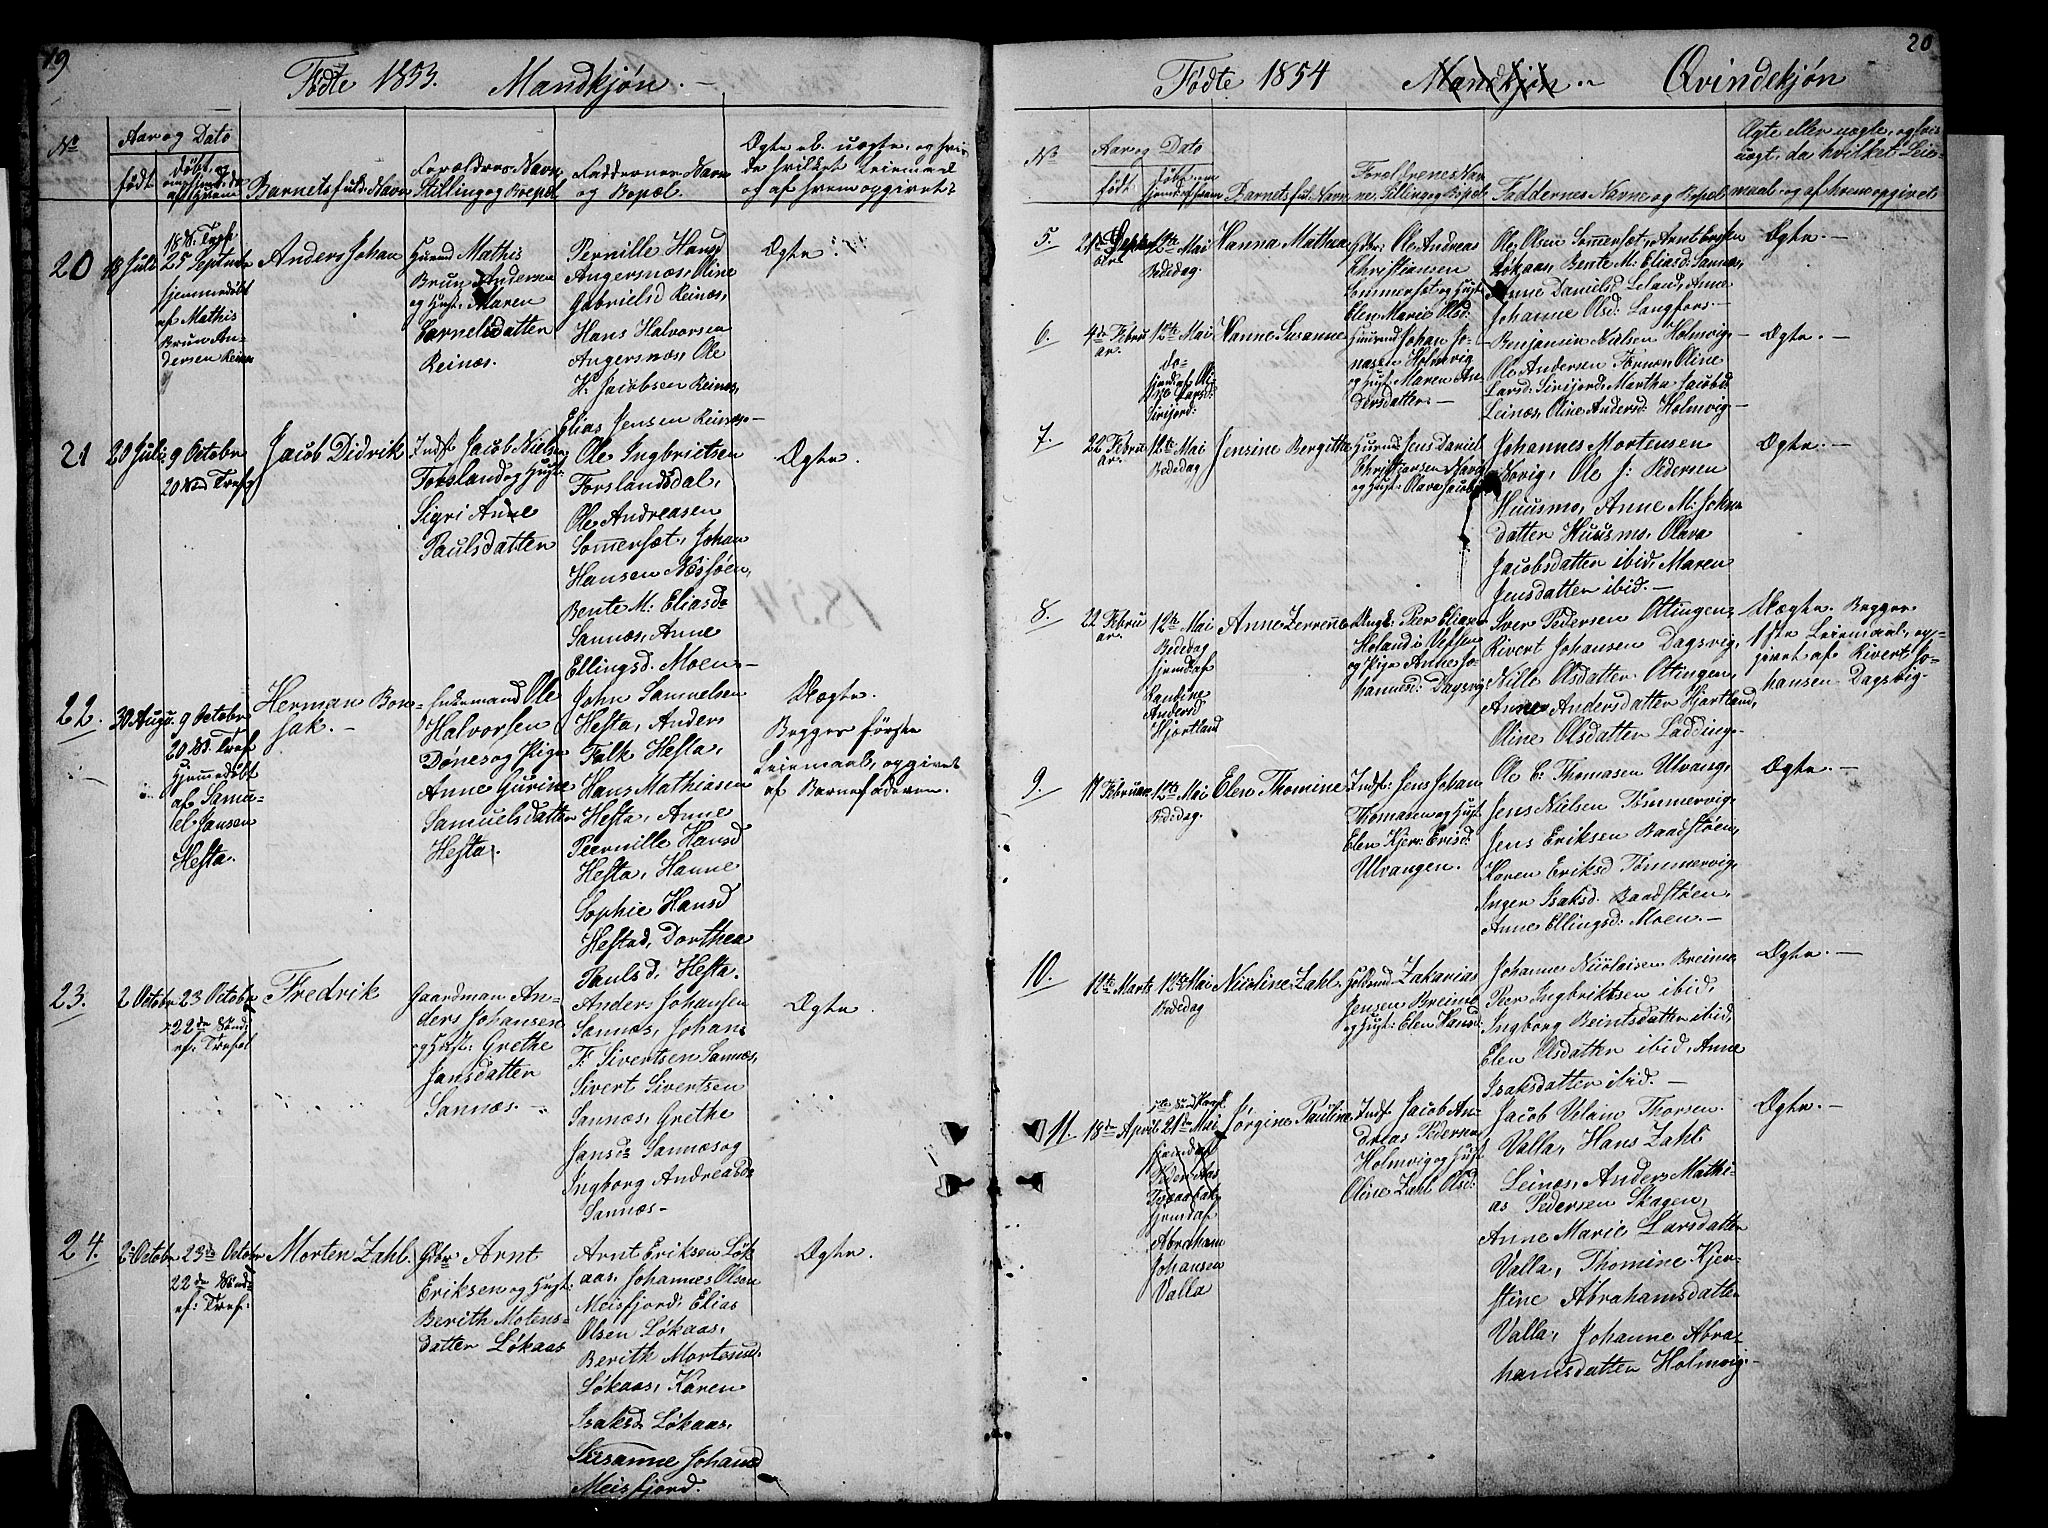 19
Fødte 1853. Mandkjøn. —
No
Aar og Dato
født
døbt, og
Barnets fulde Navn
Forældres Navn
Stilling og Bopæl
Faddernes Navn
og Bopæl.
Ægte el. uægte, og hvis
de hvilket Leiermaal
og af hvem opgivet?
20
18 Juli
18 S. Tref
25 Septmbr
hjemmedøbt
af Mathis
Brun An-
dersen Reinæs
Anders Johan
Huusmd Mathis
Brun Andersen
og Hust: Maren
Cornelisdatter
Reinæs.
Pernille Hansd
Angersnæs, Oline
Gabrielsd Reinæs,
Hans Halvorsen
Angersnæs, Ole
H. Jacobsen Reinæs,
Elias Jensen Reinæs—
Ægte.
21
20 Juli
9 Octobr
20 Sønd Tref
Jacob Didrik
Indst. Jacob Nielsen
Forsland og Hust:
Sigri Anne
Paulsdatter
Ole Ingbrietsen
Forslandsdal,
Ole Andreasen
Sommersæt, Johan
Hansen Næssøen,
Bente M: Eliasd=
Sannæs, Anne
Ellingsd. Moen—
Ægte.
22.
30 Augu.
9 Octobr
20 S. Tref
Hjemmedøbt
af Samu-
el Jansen
Hefta.
Herman Bon-
sak. —
Enkemand Ole
Halvorsen
Dønes og Pige
Anne Gurine
Samuelsdatter
Hefta.
John Samuelsen
Hefta, Anders
Falk Hefta,
Hans Mathiasen
Hefta, Anne
Peernille Hansd
Hefta, Hanne
Sophie Hansd
Heftad, Dorthea
Paulsd. Hefta.
Uægte.
Begges første
Leiermaal, opgivet
af Barnefaderen.
23.
2 Octobr
23 Octobr
22de Sønd
ef: Trefol
Fredrik
Gaardman An-
ders Johansen
og Hust: Grethe
Jansdatter
Sannæs. —
Anders Johansen
Sannæs, Johan
F. Sivertsen Sannæs,
Sivert Sivertsen
Sannæs, Grethe
Jansd= Sannæs og
Ingborg Andreasda
Sannæs—
Ægte.
24.
2 Octobr
23de Octobr
22de Sønd=
ef: Tref:
Morten Zahl.
Gbr: Arnt
Eriksen og Hust:
Berith Motens-
datter Løkaas
Arnt Eriksen Løk
aas, Johannes Olsen
Meisfjord, Elias
Olsen Løkaas,
Berith Mortensd.
Løkaas, Karen
Isaksd. Løkaas,
Susanne Johansd
Meisfjord.
Ægte.
20
Fødte 1854 Mandkjøn — Qvindekjøn
No
Aar og Dato
født
Barnets ful. Navn
Foreldrenes Nav-
ne, Stilling og Bopæl
Faddernes Navne og Bopæl
Ægte eller uægte, og hvis
uægt, da hvilket Leier-
maal og af hvem opgivet
5.
12te Mai
Bededag.
Hanna Mathea
Gbr: Ole Andreas
Christiansen
Sommersæt og Hust
Elen Marie Olsd:
Ole Olsen Sommersæt, Arnt Eriksen
Løkaas, Bente M: Eliasd: Sannæs,
Anne Danielsd Leland, Anne
Johanne Olsd: Langfors.—
Ægte.—
6.
4de Febru
ar.
12te Mai
do—
hjemd. af Oli-
ne Larsd:
Sirijord:
Hanne Susanne
Huusmd Johan Jo-
nasen Holmvig
og Hust: Maren An
dersdatter.—
Benjamin Nielsen Holmvig,
Ole Andersen Fornæs, Oline
Larsd. Sirijord, Martha Jacobsd.
Leinæs, Oline Andersd: Holmvig—
Ægte.—
7.
22 Febru
ar.
12te Mai
Bededag
Jensine Bergitta
Huusmd Jens Daniel
Christiansen Norvig
og Hust: Olava Jacobsd
Johannes Mortensen
Norvig, Ole J: Pedersen
Huusmo, Anne M: Johns
datter Huusmo, Olava
Jacobsdatter ibid, Maren
Jensdatter ibid.—
Ægte.—
8.
22 Febru
ar.
12te Mai
Bededag
hjemd. af
Randine
Andersd
Hjortland
Anne Zerrene
Ungk: Peer Elias
Holand i Vefsen
og Pige Anne Jo-
hannesd: Dagsvig
Iver Pedersen Ottingen,
Rivert Johansen Dagsvig,
Nille Olsdatter Ottingen,
Anne Andersdatter Hjortland,
Oline Olsdatter Ladding—
Uægte. Begges
1ste Leiermaal, op-
givet af Rivert Jo-
hansen Dagsvig—
9.
11 Februar
12te Mai
Bededag.
Elen Thomine
Indst: Jens Johan
Thomasen og Hust
Elen Kjer: Erisd:
Ulvangen.
Ole C: Thomasen Ulvang,
Jens Nielsen Tømmervig,
Jens Eriksen Baadstøen,
Karen Eriksd Tømmervig,
Inger Isaksd. Baadstøen,
Anne Ellingsd: Moen.—
Ægte.—
10.
12te Marts
12te Mai
Bededag
Nicoline Zahl
Zakarias
Jensen Breimo
og Hust: Elen Hansd:
Johannes Nicolaisen Breimo
Peer Ingbriktsen ibid,
Ingborg Beintsdatter ibid,
Elen Olsdatter ibid, Anne
Isaksdatter ibid.—
Ægte.—
11.
18de April
21de Mai
hjemd. af
Abraham
Johansen
Valla
Jørgine Pauline
Indst. Jacob An-
dreas Pedersen
Holmvig og Hust
Oline Zahl Olsd:
Jacob Velain Thorsen
Valla, Hans Zahl
Leinæs, Anders Mathi-
as Pedersen Skagen,
Anne Marie Larsdatter
Valla, Thomine Kjer-
stine Abrahamsdatter
Valla, Johanne Abra-
hamsdatter Holmvig—
Ægte.—